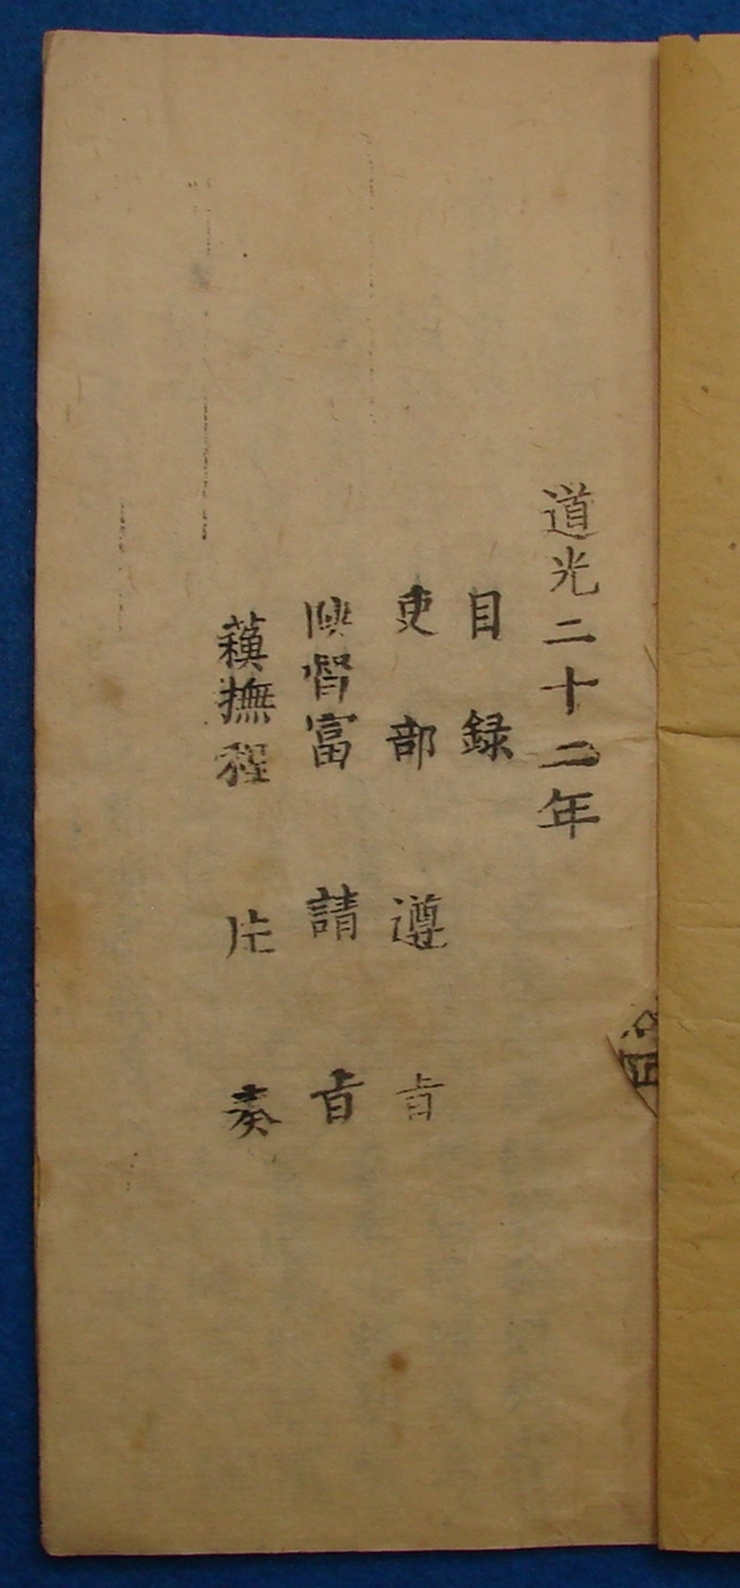 道光二十二年
目録
吏部 遵 㫖
陝督富 請 㫖
蘓撫程 片 奏